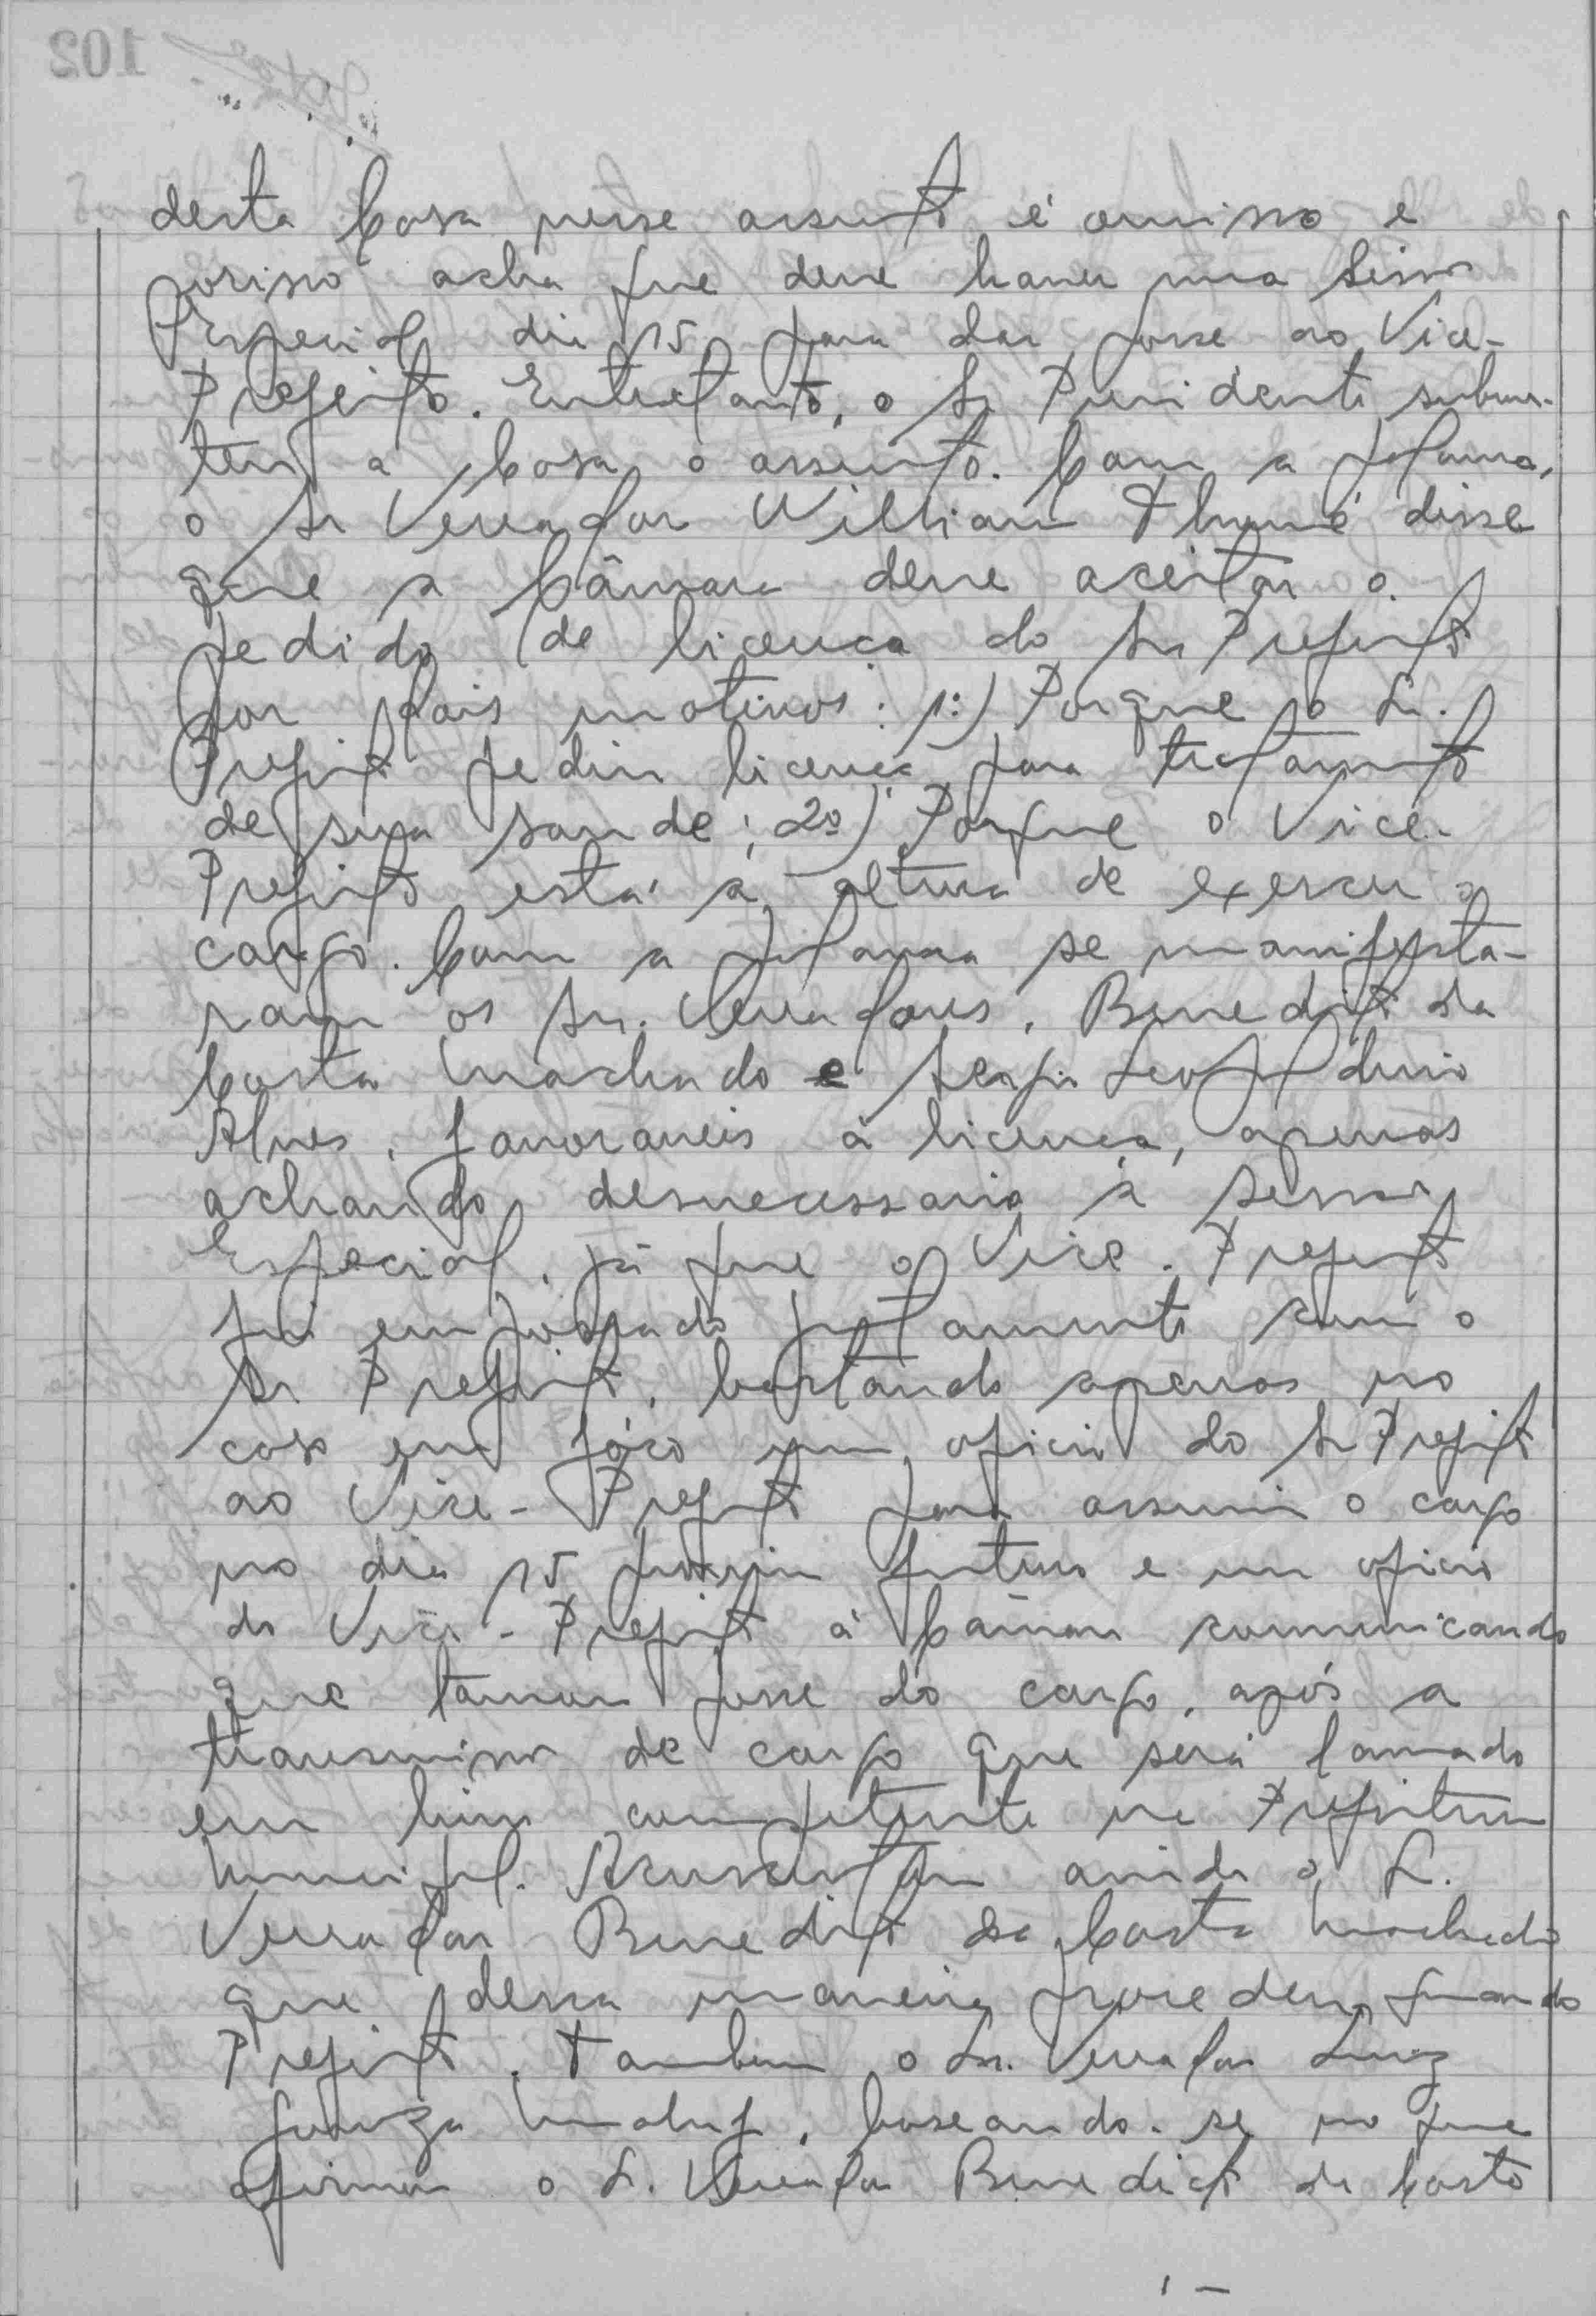 desta Casa nesse assunto é omisso e
porisso acha que deve haver uma Sessão
Especial dia 15, para dar posse ao Vice-
Prefeito. Entretanto, o Sr Presidente subme-
teu a Casa o assunto. Com a palavra,
o Sr Vereador William Thomé disse
que a Câmara deve aceitar o
pedido de licença do Sr Prefeito
por dois motivos: 1º) Porque o Sr.
Prefeito pediu licença para tratamento
de sua saude; 2º) Porque o Vice-
Prefeito está à altura de exercer o
cargo. Com a palavra se manifesta-
ram os Srs. Vereadores, Benedicto da
Costa Machado e Sergio Leopoldino
Alves, favoraveis à licença, apenas
achando desnecessaria a sessão
Especial, já que o Vice-Prefeito
foi empossado juntamente com o
Sr Prefeito, bastando apenas no
caso em fóco um oficio do Sr Prefeito
ao Vice-Prefeito para assumir o cargo
no dia 15 proximo futuro e um oficio
do Vice-Prefeito à Câmara comunicando
que tomou posse do cargo, após a
transmissão de cargo que será lavrado
em livro competente na Prefeitura
Municipal. Acrescentou ainda o Sr.
Vereador Benedicto da Costa Machado
que dessa maneira procedeu quando
Prefeito. Tambem o Sr. Vereador Luiz
Maluf, baseando-se no que
afirmou o Sr. Vereador Benedicto da Costa
102